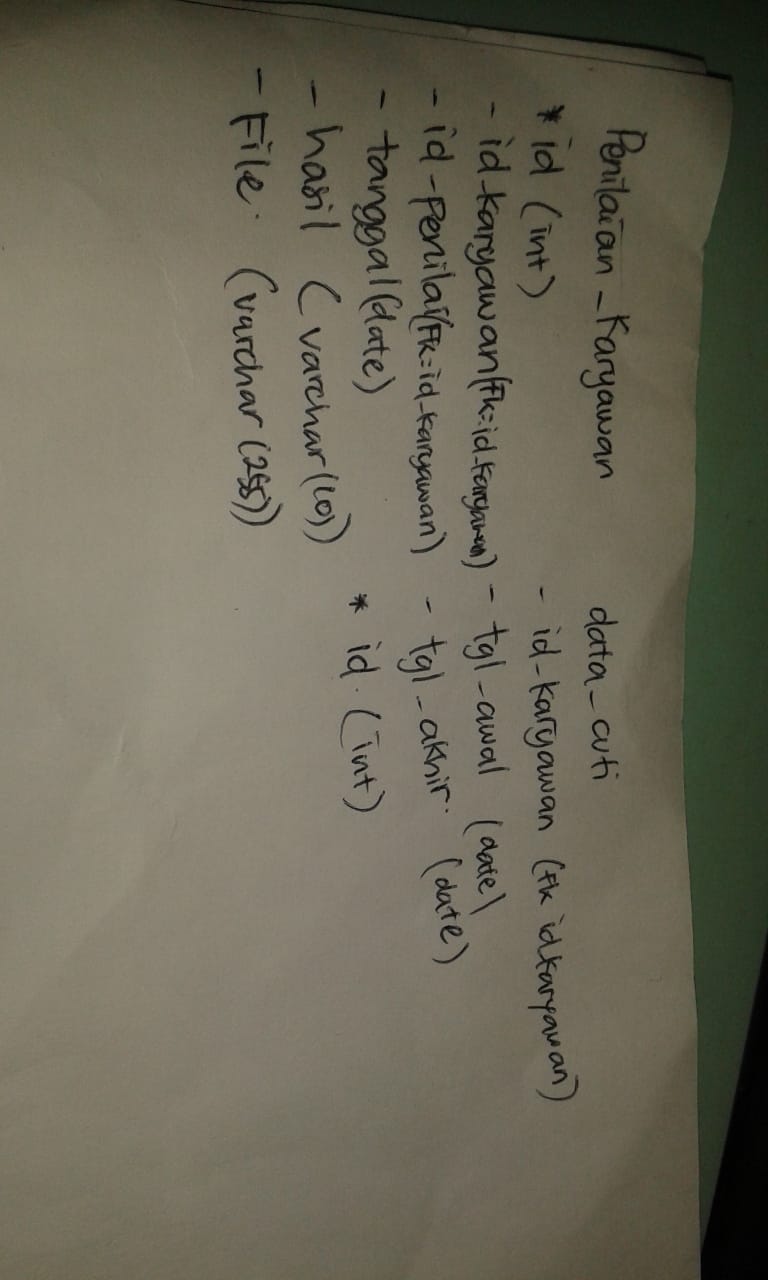 Penilaian_Karyawan
* id (int)
- id_karyawan (fk=id_karyawan)
- id-penilai (FK=id_karyawan)
- tanggal (date)
- hasil (varchar(10))
- File. (varchar (255))
data_cuti
- id_karyawan (fk id karyawan)
- tgl_awal (date)
- tgl_akhir. (date)
* id. (int)